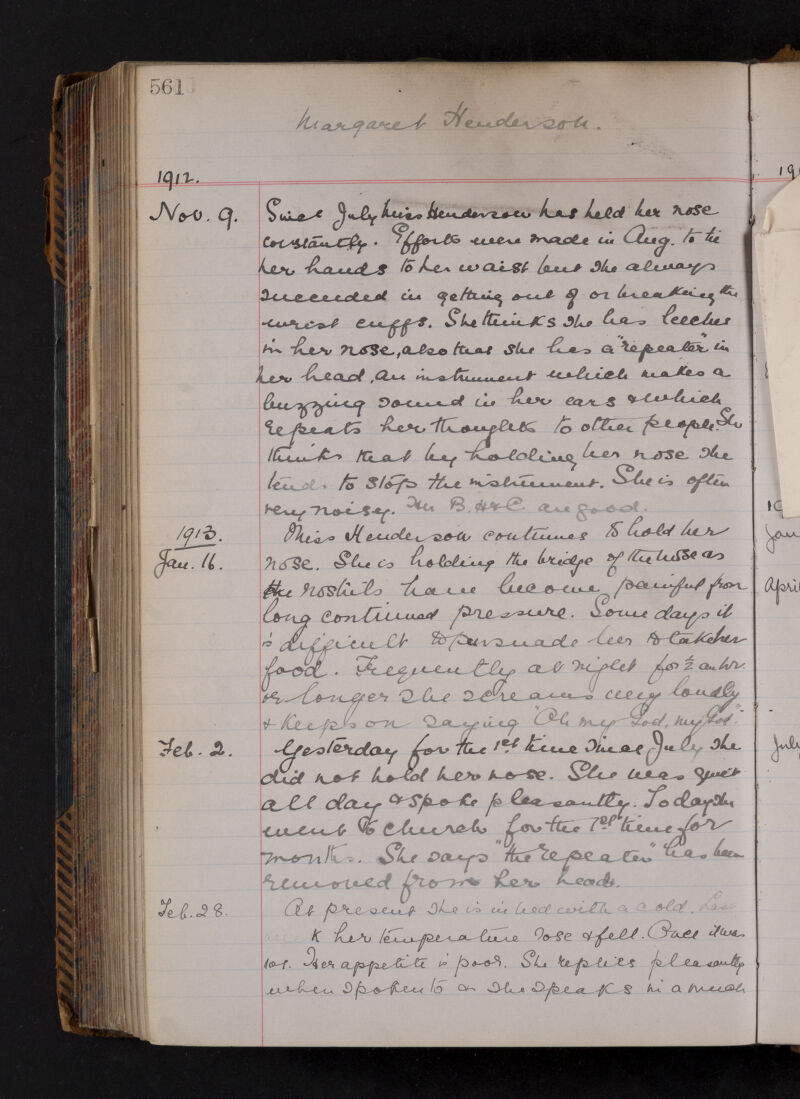 561
Margaret Henderson.
1912.
19
Nov. 9. Since July Miss Henderson has held her nose
constantly. Efforts were made in Aug. to tie
her hands to her waist but she always
succeeded in getting out of or breaking the
wrist cuffs. She thinks she has leeches
in her nose, also that she has a "repeater" in
her head, an instrument which makes a
buzzing sound in her ears & which
repeats her thoughts to other people. She
thinks that by holding her nose she
tends to stop the instrument. She is often
very noisy. Her B. H & C. are good.
1913.
Jan. 16. Miss Henderson continues to hold her
nose. She is holding the bridge of the nose as
the nostrils have become painful from
long continued pressure. Some days it
is difficult to persuade her to take her
food. Frequently at night for ½ an hr.
or longer she screams very loudly
& keeps on saying "Oh my God, my God".
Feb. 2. Yesterday for the 1st time since July she
did not hold her nose. She was quiet
all day & spoke pleasantly. Today she
went to church for the 1st time for
months. She says "the repeater" has been
removed from her head.
Feb. 28. At present she is in bed with a cold. Last
her temperature rose & fell. Once it was
101. Her appetite is poor. She replies pleasantly
when spoken to or she speaks in a much
19
Jan
April
July